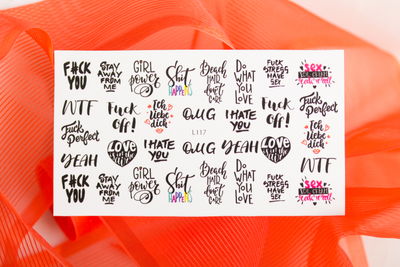 F#CK YOU
STAY AWAY FROM ME
GIRL power
Shit HAPPENS
Beach HAIR don't CARE
DO WHAT YOU LOVE
FUCK STRESS HAVE SEX
SEX
WTF
Fuck off!
Ich liebe dich
OMG
I HATE YOU
Fuck off!
Fuck Perfect
L117
Fuck Perfect
YEAH
LOVE
I HATE YOU
OMG
YEAH
LOVE
Ich liebe dich
WTF
F#CK YOU
STAY AWAY FROM ME
GIRL power
Shit HAPPENS
Beach HAIR don't CARE
DO WHAT YOU LOVE
FUCK STRESS HAVE SEX
SEX